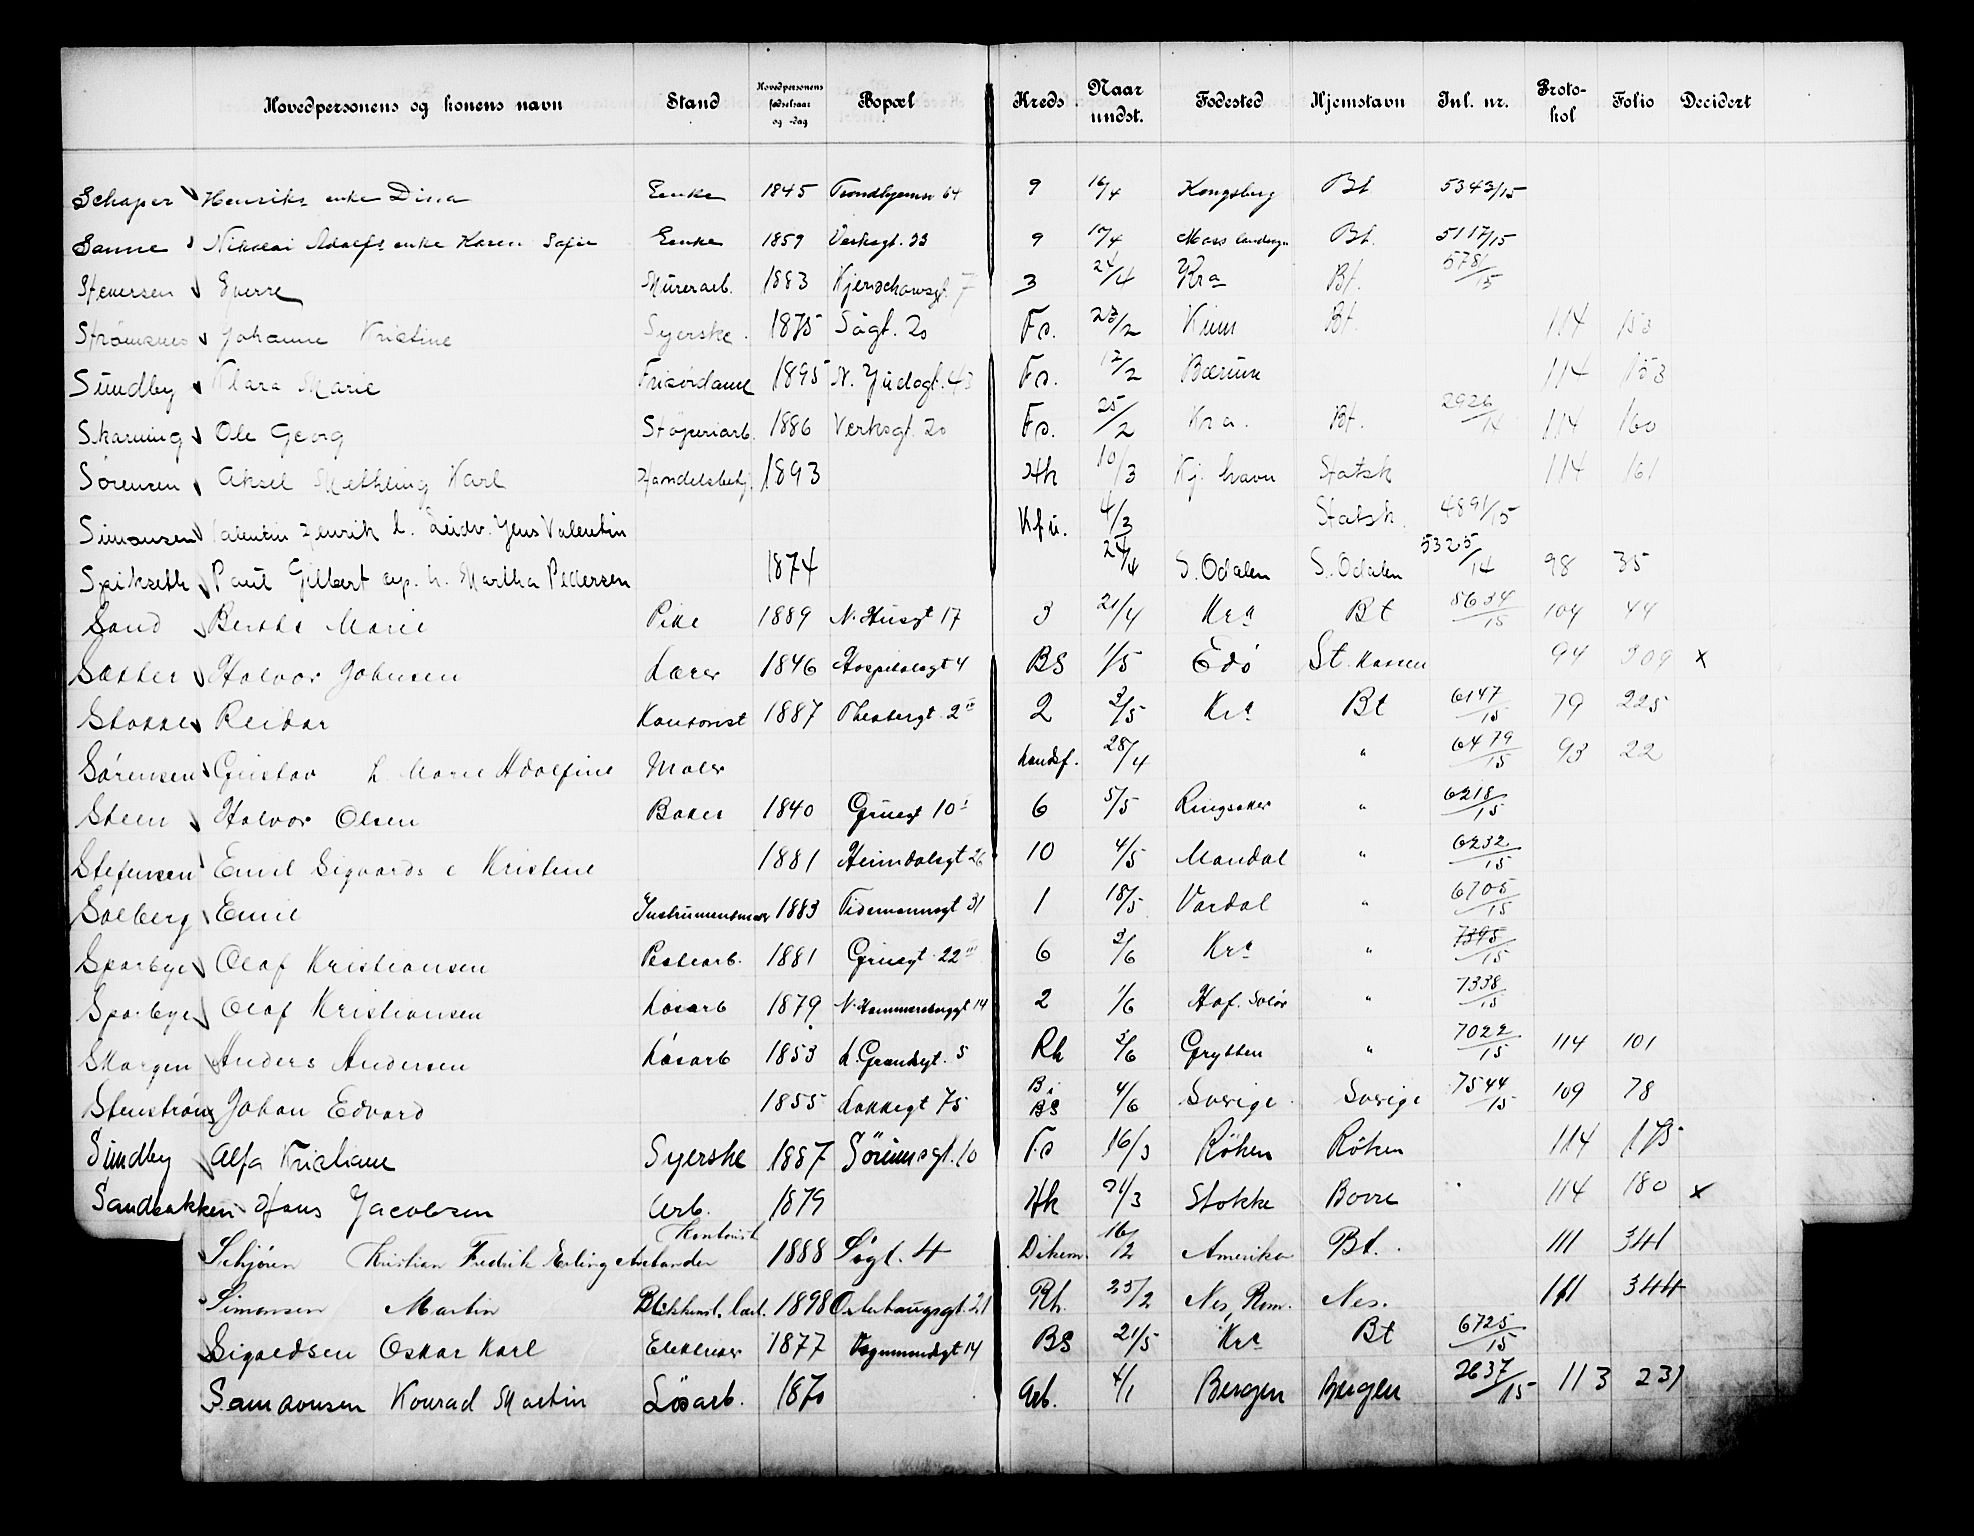 Hovedpersonens og konens navn Stand Hovedpersonens fødselsaar og -dag Bopæl Kreds Naar undst. Fødested Hjemstavn Jnl. nr. Protokol Folio Decidert
Schaper Henriks enke Dina Enke 1845 Trondhjemsv 64 9 16/4 Kongsberg Bt 5343/15
Sanne Nikolai Adolfs enke Karen Sofie Enke 1859 Verksgt. 23 9 17/4 Moss landsogn Bt. 5117/15
Stenersen Sverre Murerarb. 1883 Kjerschowsgt. 7 3 24/4 Kra Bt. 5781/15
Strømsnes Johanne Kristine Syerske 1875 Søgt. 20 Fø. 23/2 Bt. 114 153
Sundby Klara Marie Frisørdame 1895 43 Fø. 17/2 Bærum 114 153
Skarning Ole Georg Støperiarb. 1886 Verksgt. 20 Fø. 25/2 Kra. Bt. 2926/14 114 160
Sørensen Aksel Methling Karl Handelsbetj. 1893 Hk 10/3 Kj. havn Statsk 114 161
Simonsen Valentin Henrik h. Ludv. Jens Valentin Kfu. 4/3 Statsk. 4891/15
Spikseth Paul Gilbert h. Martha Pedersen 1874 24/4 S. Odalen S. Odalen 5325/14 98 35
Sand Berthe Marie Pike 1889 N. Husgt 17 3 21/4 Kra Bt 8634/15 104 44
Sæther Halvor Johnsen Lærer 1846 Hospitalsgt 4 BS 1/5 Edø St. kassen 94 309 x
Stokke Reidar Kontorist 1887 Theresesgt. 2 III 2 3/5 Kra Bt 6147/15 79 225
Sørensen Gustav h Marie Adolfine Maler Landsf. 28/4 " 6479/15 93 22
Steen Halvor Olsen Baker 1840 Grüsgt 10 I 6 5/5 Ringsaker " 6218/15
Stefensen Emil Sigvards e Kristine 1881 Heimdalsgt 26 10 4/5 Mandal " 6232/15
Solberg Emil Instrumentmaker 1883 Tidemannsgt 31 1 18/5 Vardal " 6705/15
Sparbye Olaf Kristiansen Pakkarb. 1881 Grüsgt. 22 III 6 3/6 Kra " 7395/15
Sparbye Olaf Kristiansen Løsarb 1879 N. Hammersborggt 14 2 1/6 Hof. Solør " 7338/15
Skorgen Anders Andersen Løsarb 1853 L. Grændsgt. 5 Rh 3/6 Grytten " 7022/15 114 101
Stenstrøm Johan Edvard 1855 Lakkegt 75 Bi BS 4/6 Sverige Sverige 7544/15 109 78
Sundby Alfa Kristiane Syerske 1887 Sörumsgt. 10 Fø 16/3 Röken Röken 114 175
Sandbakken Hans Jacobsen Arb. 1879 Hk 21/3 Stokke Borre 114 180 x
Schjøren Kristian Fredrik Erling Anstander Kontorist 1888 Søgt. 4 Dikem. 16/2 Amerika Bt. 111 341
Simonsen Martin Blikkensl. lærl. 1898 Osterhausgt. 21 Rh. 25/2 Nes, Rom. Nes. 111 344
Sigvaldsen Oskar Karl Elektriker 1877 Vognmandsgt 14 BS 21/5 Kra Bt 6725/15
Samsonsen Konrad Martin Løsarb. 1870 Arb. 4/1 Bergen Bergen 2637/15 113 231